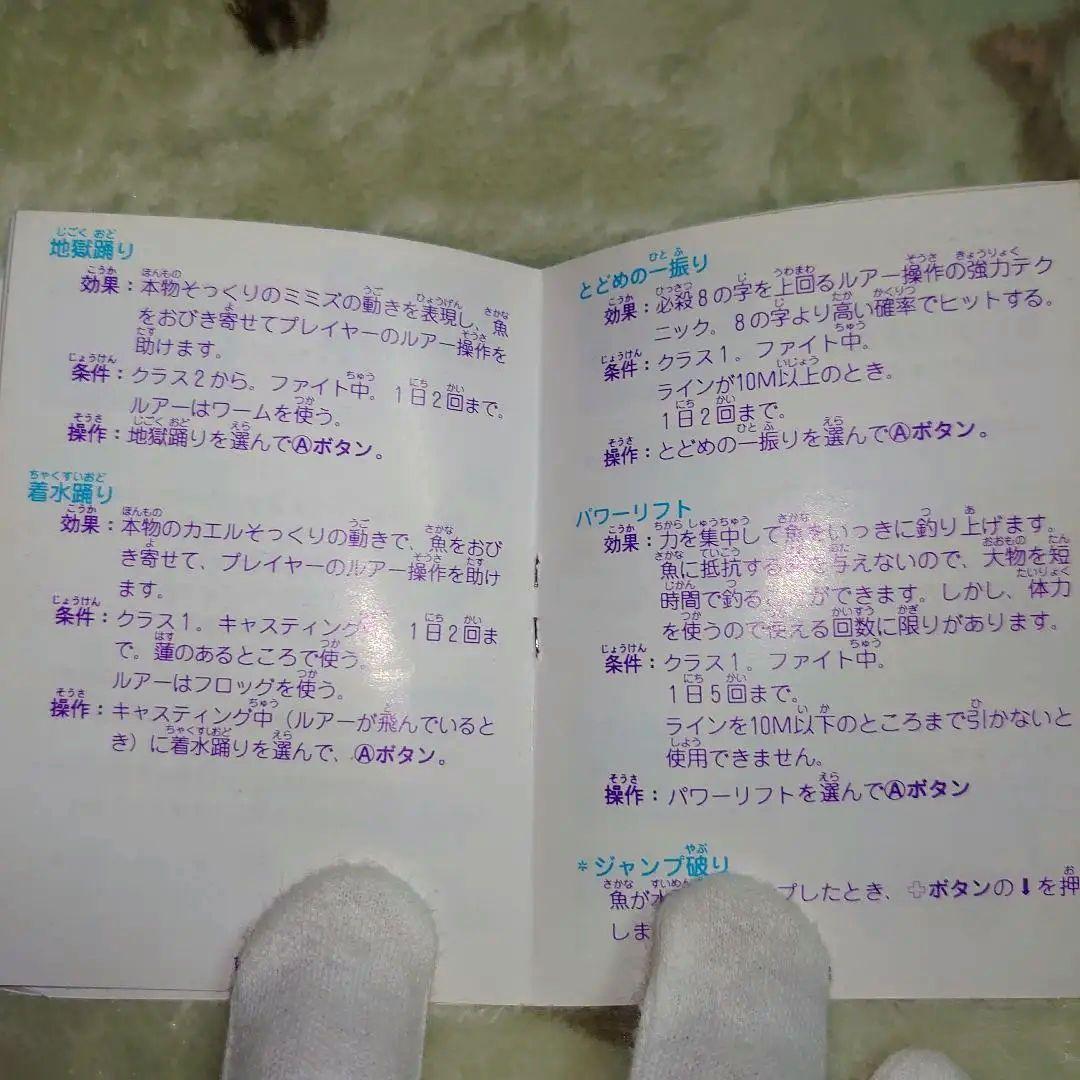 地獄踊り
効果：本物そっくりのミミズの動きを表現し、魚
をおびき寄せてプレイヤーのルアー操作を
助けます。
条件：クラス2から。ファイト中。1日2回まで。
ルアーはワームを使う。
操作：地獄踊りを選んでⒶボタン。
着水踊り
効果：本物のカエルそっくりの動きで、魚をおび
き寄せて、プレイヤーのルアー操作を助け
ます。
条件：クラス1。キャスティング 1日2回ま
で。蓮のあるところで使う。
ルアーはフロッグを使う。
操作：キャスティング中（ルアーが飛んでいると
き）に着水踊りを選んで、Ⓐボタン。
とどめの一振り
効果：必殺8の字を上回るルアー操作の強力テク
ニック。8の字より高い確率でヒットする。
条件：クラス1。ファイト中。
ラインが10M以上のとき。
1日2回まで。
操作：とどめの一振りを選んでⒶボタン。
パワーリフト
効果：力を集中して魚をいっきに釣り上げます。
魚に抵抗する 与えないので、大物を短
時間で釣る ができます。しかし、体力
を使うので使える回数に限りがあります。
条件：クラス1。ファイト中。
1日5回まで。
ラインを10M以下のところまで引かないと
使用できません。
操作：パワーリフトを選んでⒶボタン
＊ジャンプ破り
魚が水 プしたとき、✚ボタンの⬇を押
しま